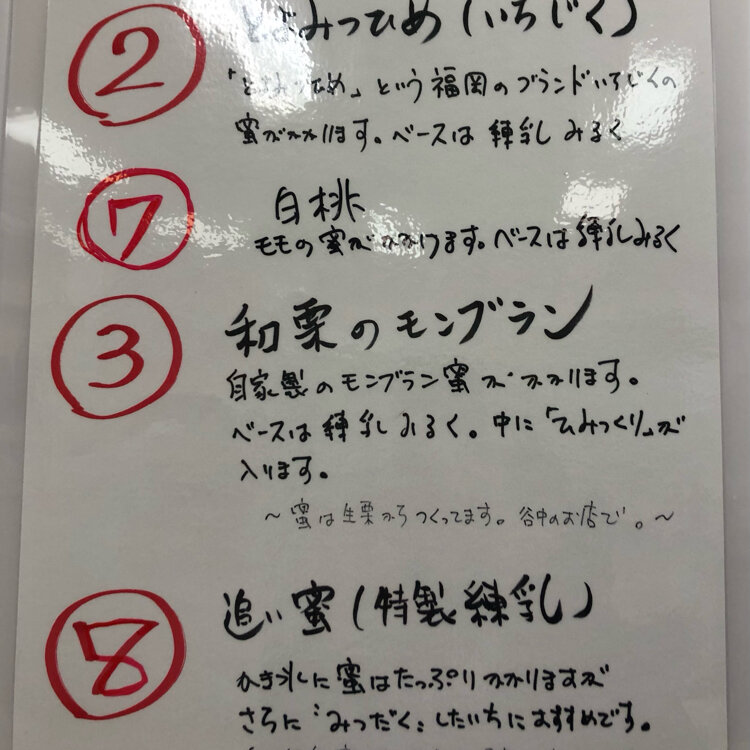 ②
とよみつひめ(いちじく)
「とよみつひめ」という福岡のブランドいちじくの
蜜がかかります。ベースは練乳みるく
⑦
白桃
モモの蜜がかかります。ベースは練乳みるく
③
和栗のモンブラン
自家製のモンブラン蜜がかかります。
ベースは練乳みるく。中に「ひみつくり」が
入ります。
～蜜は生栗からつくってます。谷中のお店で。～
⑧
追い蜜(特製練乳)
かき氷に蜜はたっぷりかかりますが
さらに"みつだく"したい方におすすめです。